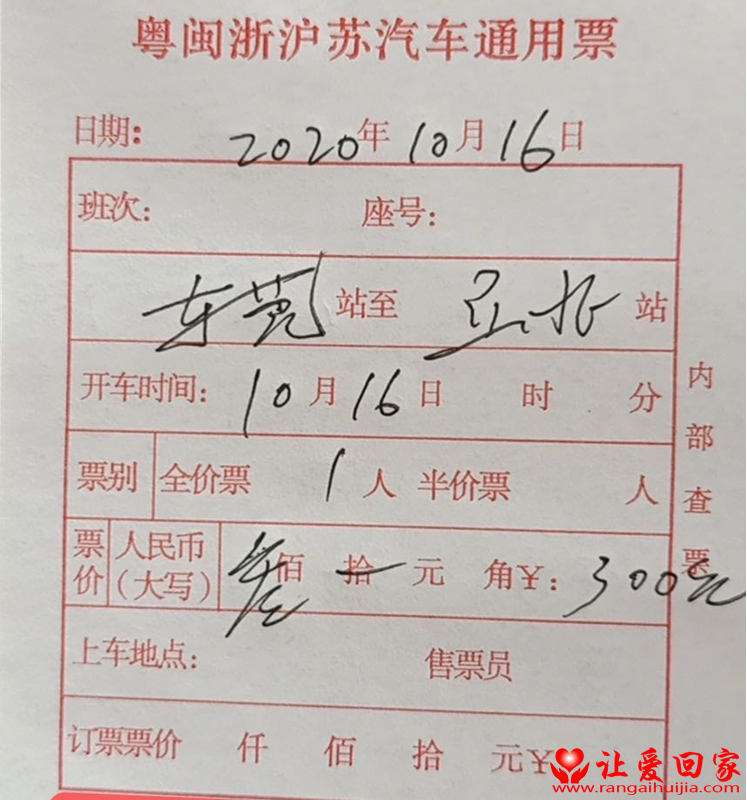 粤闽浙沪苏汽车通用票
日期: 2020年10月16日
班次: 座号:
东莞站至 站
开车时间: 10月16日 时 分
票别 全价票 1人 半价票 人
票价 人民币(大写) 叁佰拾一元 角¥: 300元
上车地点: 售票员
订票票价 仟 佰 拾 元¥
内部查票
让爱回家
www.rangaihuijia.com